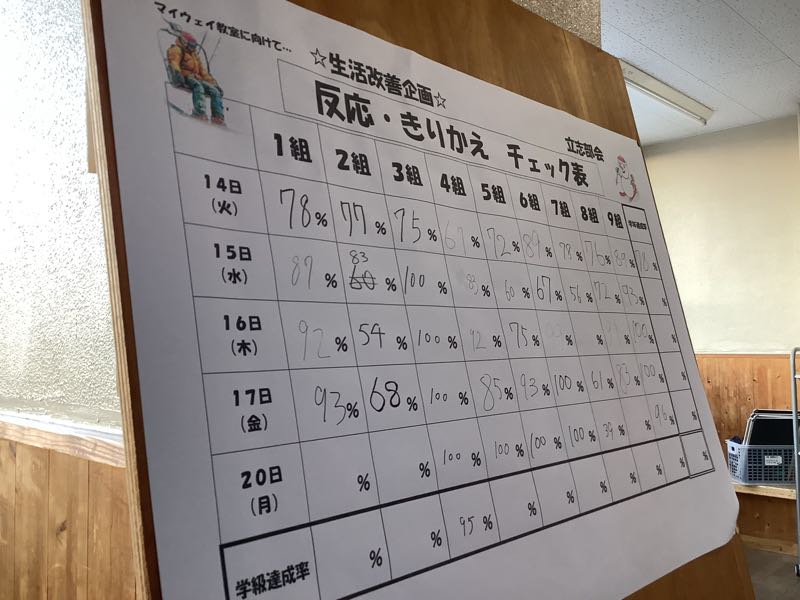 マイウェイ教室に向けて…
☆生活改善企画☆
反応・きりかえ チェック表
立志部会
1組 2組 3組 4組 5組 6組 7組 8組 9組
14日(火) 78% 77% 75% % 72% 89% 78% 76% % %
15日(水) 87% 83 60% 100% 83% 60% 67% 56% 72% 93% %
16日(木) 92% 54% 100% 92% 75% % % % 100% %
17日(金) 93% 68% 100% 85% 93% 100% 61% 83% 100% %
20日(月) % % 100% 100% 100% 100% 39% % 96% %
学級達成率 % % 95% % % % % % % %